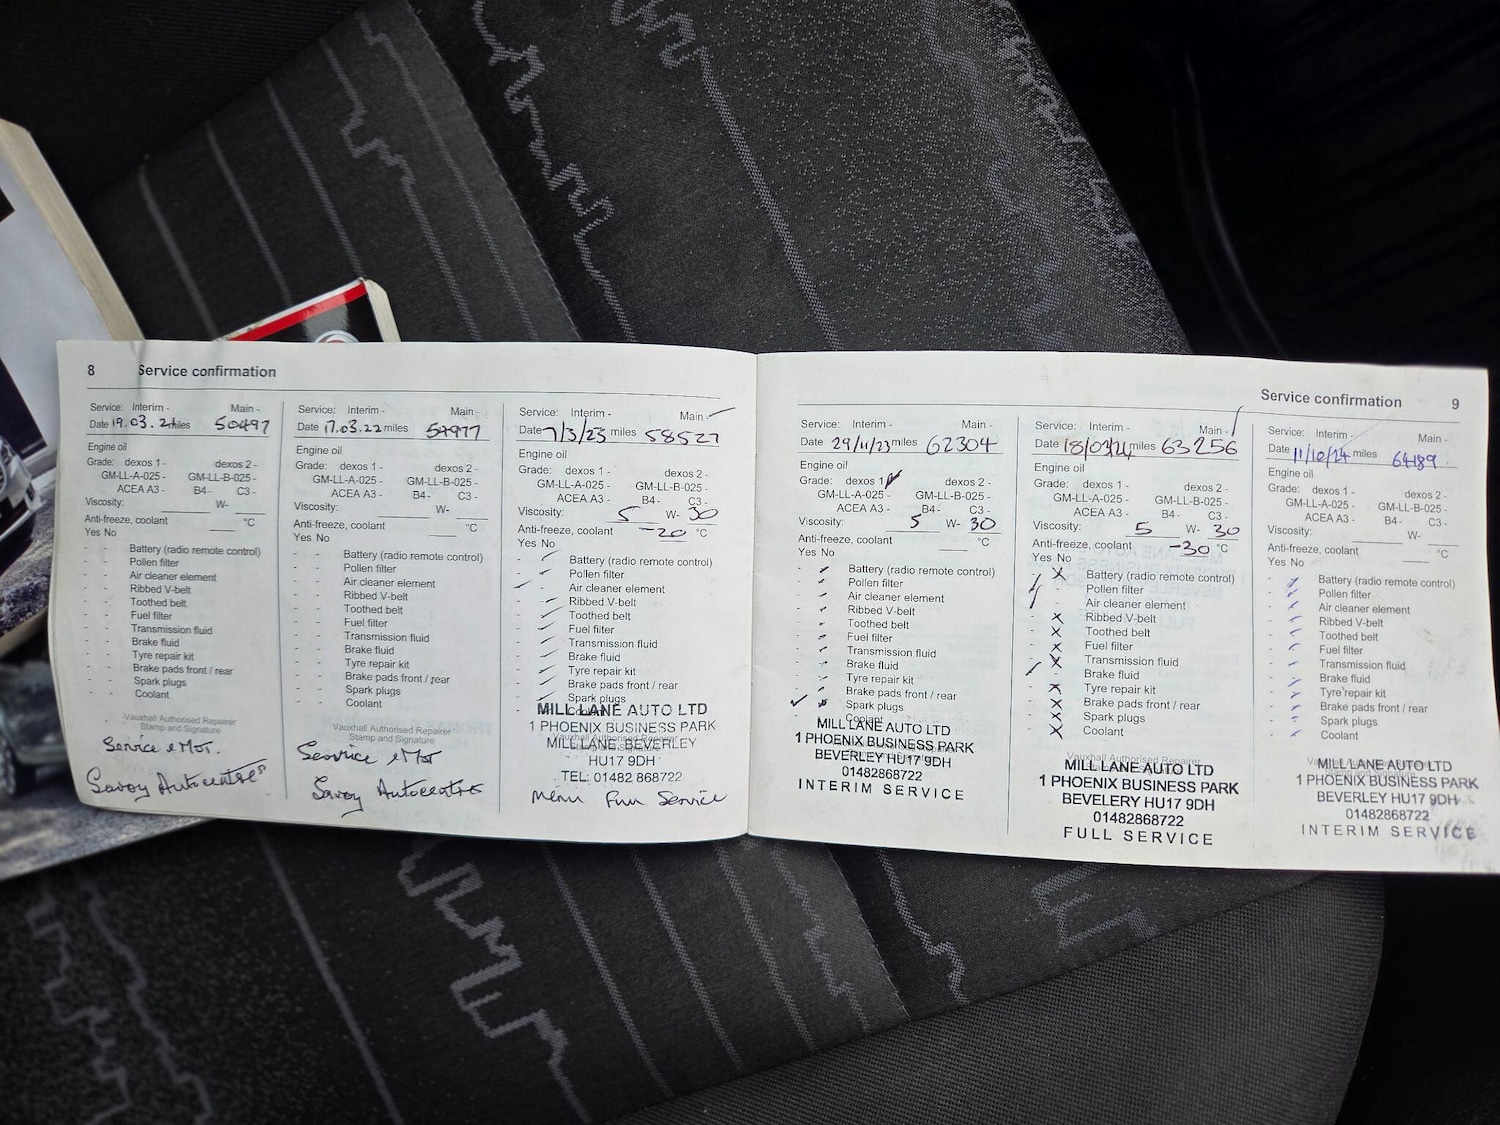 8 Service confirmation
Service: Interim - Main -
Date 19.03.21 miles 50497
Engine oil
Grade: dexos 1 - dexos 2 -
GM-LL-A-025 - GM-LL-B-025 -
ACEA A3 - B4 - C3 -
Viscosity: W-
Anti-freeze, coolant °C
Yes No
- - Battery (radio remote control)
- - Pollen filter
- - Air cleaner element
- - Ribbed V-belt
- - Toothed belt
- - Fuel filter
- - Transmission fluid
- - Brake fluid
- - Tyre repair kit
- - Brake pads front / rear
- - Spark plugs
- - Coolant
Vauxhall Authorised Repairer
Stamp and Signature
Service & MoT.
Savoy Autocentres
Service: Interim - Main -
Date 17.03.22 miles 54977
Engine oil
Grade: dexos 1 - dexos 2 -
GM-LL-A-025 - GM-LL-B-025 -
ACEA A3 - B4 - C3 -
Viscosity: W-
Anti-freeze, coolant °C
Yes No
- - Battery (radio remote control)
- - Pollen filter
- - Air cleaner element
- - Ribbed V-belt
- - Toothed belt
- - Fuel filter
- - Transmission fluid
- - Brake fluid
- - Tyre repair kit
- - Brake pads front / rear
- - Spark plugs
- - Coolant
Vauxhall Authorised Repairer
Stamp and Signature
Service & MoT
Savoy Autocentres
Service: Interim - Main -
Date 7/3/23 miles 58527
Engine oil
Grade: dexos 1 - dexos 2 -
GM-LL-A-025 - GM-LL-B-025 -
ACEA A3 - B4 - C3 -
Viscosity: 5 W- 30
Anti-freeze, coolant -20 °C
Yes No
Battery (radio remote control)
Pollen filter
Air cleaner element
Ribbed V-belt
Toothed belt
Fuel filter
Transmission fluid
Brake fluid
Tyre repair kit
Brake pads front / rear
Spark plugs
Coolant
MILL LANE AUTO LTD
1 PHOENIX BUSINESS PARK
MILL LANE, BEVERLEY
HU17 9DH
TEL: 01482 868722
Service
Service confirmation 9
Service: Interim - Main -
Date 29/11/23 miles 62304
Engine oil
Grade: dexos 1 dexos 2 -
GM-LL-A-025 - GM-LL-B-025 -
ACEA A3 - B4 - C3 -
Viscosity: 5 W- 30
Anti-freeze, coolant °C
Yes No
Battery (radio remote control)
Pollen filter
Air cleaner element
Ribbed V-belt
Toothed belt
Fuel filter
Transmission fluid
Brake fluid
Tyre repair kit
Brake pads front / rear
Spark plugs
Coolant
MILL LANE AUTO LTD
1 PHOENIX BUSINESS PARK
BEVERLEY HU17 9DH
01482868722
INTERIM SERVICE
Service: Interim - Main -
Date 18/03/24 miles 63256
Engine oil
Grade: dexos 1 - dexos 2 -
GM-LL-A-025 - GM-LL-B-025 -
ACEA A3 - B4 - C3 -
Viscosity: 5 W- 30
Anti-freeze, coolant -30 °C
Yes No
Battery (radio remote control)
Pollen filter
Air cleaner element
Ribbed V-belt
Toothed belt
Fuel filter
Transmission fluid
Brake fluid
Tyre repair kit
Brake pads front / rear
Spark plugs
Coolant
MILL LANE AUTO LTD
1 PHOENIX BUSINESS PARK
BEVELERY HU17 9DH
01482868722
FULL SERVICE
Service: Interim - Main -
Date 11/10/24 miles 64189
Engine oil
Grade: dexos 1 - dexos 2 -
GM-LL-A-025 - GM-LL-B-025 -
ACEA A3 - B4 - C3 -
Viscosity: W-
Anti-freeze, coolant °C
Yes No
Battery (radio remote control)
Pollen filter
Air cleaner element
Ribbed V-belt
Toothed belt
Fuel filter
Transmission fluid
Brake fluid
Tyre repair kit
Brake pads front / rear
Spark plugs
Coolant
MILL LANE AUTO LTD
1 PHOENIX BUSINESS PARK
BEVERLEY HU17 9DH
01482868722
INTERIM SERVICE